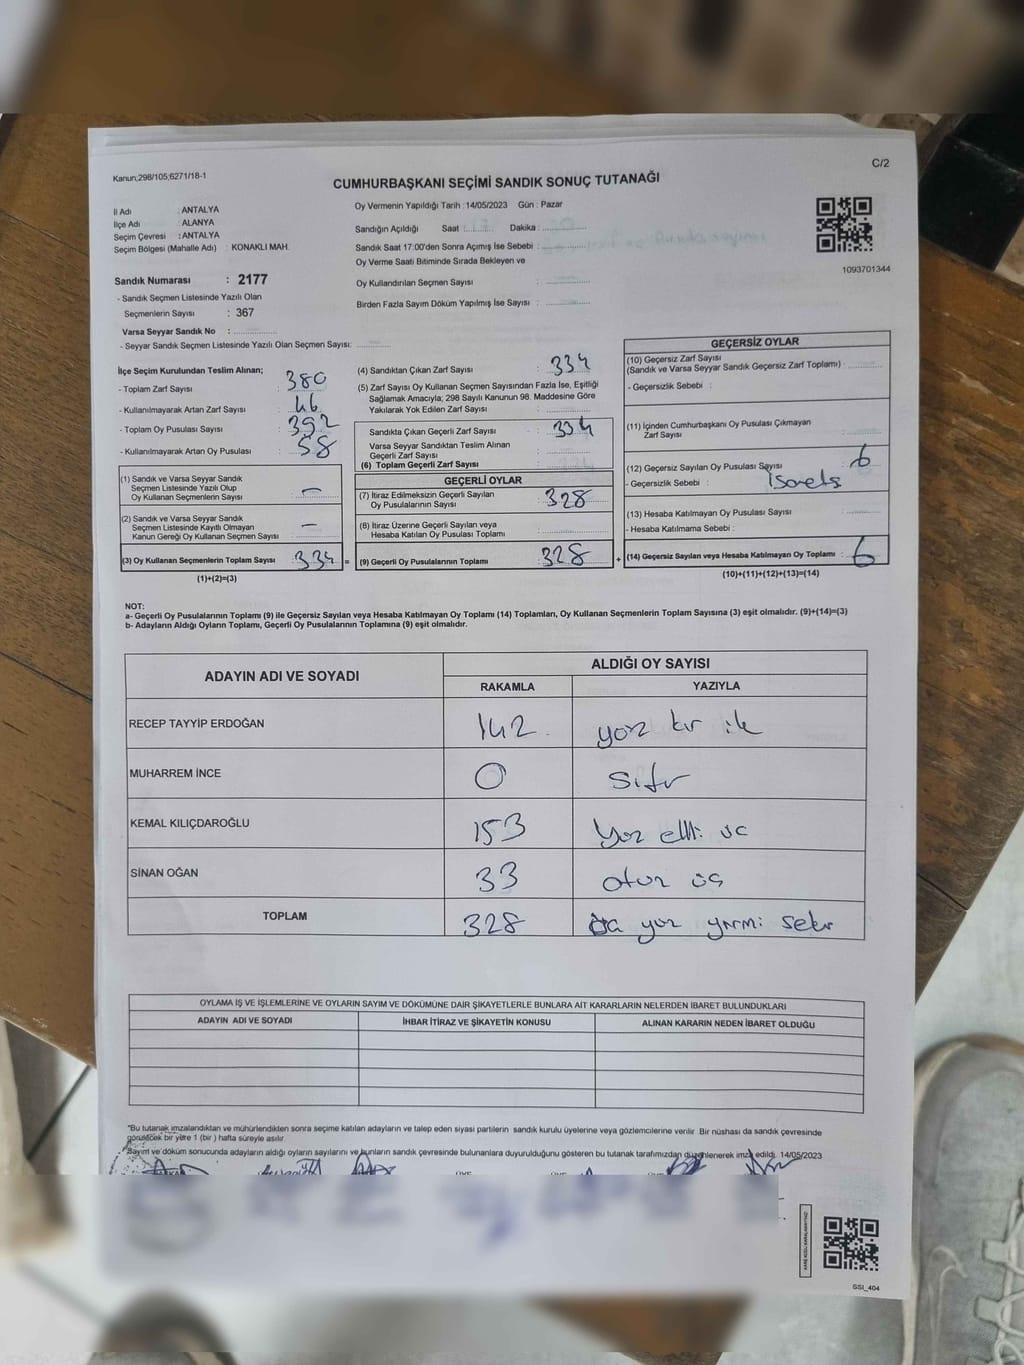 Kanun;298/105;6271/18-1
C/2
CUMHURBAŞKANI SEÇİMİ SANDIK SONUÇ TUTANAĞI
İl Adı : ANTALYA
İlçe Adı : ALANYA
Seçim Çevresi : ANTALYA
Seçim Bölgesi (Mahalle Adı) : KONAKLI MAH.
Sandık Numarası : 2177
- Sandık Seçmen Listesinde Yazılı Olan
Seçmenlerin Sayısı : 367
Varsa Seyyar Sandık No :
- Seyyar Sandık Seçmen Listesinde Yazılı Olan Seçmen Sayısı:
Oy Vermenin Yapıldığı Tarih :14/05/2023 Gün : Pazar
Sandığın Açıldığı Saat : Dakika :
Sandık Saat 17:00'den Sonra Açımış İse Sebebi :
Oy Verme Saati Bitiminde Sırada Bekleyen ve
Oy Kullandırılan Seçmen Sayısı :
Birden Fazla Sayım Döküm Yapılmış İse Sayısı :
1093701344
İlçe Seçim Kurulundan Teslim Alınan;
- Toplam Zarf Sayısı : 380
- Kullanılmayarak Artan Zarf Sayısı : 46
- Toplam Oy Pusulası Sayısı : 392
- Kullanılmayarak Artan Oy Pusulası : 58
(1) Sandık ve Varsa Seyyar Sandık
Seçmen Listesinde Yazılı Olup
Oy Kullanan Seçmenlerin Sayısı : —
(2) Sandık ve Varsa Seyyar Sandık
Seçmen Listesinde Kayıtlı Olmayan
Kanun Gereği Oy Kullanan Seçmen Sayısı : —
(3) Oy Kullanan Seçmenlerin Toplam Sayısı : 334 =
(1)+(2)=(3)
(4) Sandıktan Çıkan Zarf Sayısı : 334
(5) Zarf Sayısı Oy Kullanan Seçmen Sayısından Fazla İse, Eşitliği
Sağlamak Amacıyla; 298 Sayılı Kanunun 98. Maddesine Göre
Yakılarak Yok Edilen Zarf Sayısı :
Sandıkta Çıkan Geçerli Zarf Sayısı : 334
Varsa Seyyar Sandıktan Teslim Alınan
Geçerli Zarf Sayısı :
(6) Toplam Geçerli Zarf Sayısı :
GEÇERLİ OYLAR
(7) İtiraz Edilmeksizin Geçerli Sayılan
Oy Pusulalarının Sayısı : 328
(8) İtiraz Üzerine Geçerli Sayılan veya
Hesaba Katılan Oy Pusulası Toplamı :
(9) Geçerli Oy Pusulalarının Toplamı : 328 +
GEÇERSİZ OYLAR
(10) Geçersiz Zarf Sayısı
(Sandık ve Varsa Seyyar Sandık Geçersiz Zarf Toplamı) :
- Geçersizlik Sebebi :
(11) İçinden Cumhurbaşkanı Oy Pusulası Çıkmayan
Zarf Sayısı :
(12) Geçersiz Sayılan Oy Pusulası Sayısı : 6
- Geçersizlik Sebebi :
(13) Hesaba Katılmayan Oy Pusulası Sayısı :
- Hesaba Katılmama Sebebi :
(14) Geçersiz Sayılan veya Hesaba Katılmayan Oy Toplamı : 6
(10)+(11)+(12)+(13)=(14)
NOT:
a- Geçerli Oy Pusulalarının Toplamı (9) ile Geçersiz Sayılan veya Hesaba Katılmayan Oy Toplamı (14) Toplamları, Oy Kullanan Seçmenlerin Toplam Sayısına (3) eşit olmalıdır. (9)+(14)=(3)
b- Adayların Aldığı Oyların Toplamı, Geçerli Oy Pusulalarının Toplamına (9) eşit olmalıdır.
ADAYIN ADI VE SOYADI ALDIĞI OY SAYISI
RAKAMLA YAZIYLA
RECEP TAYYİP ERDOĞAN 142 yüz kır ik
MUHARREM İNCE 0 sıfır
KEMAL KILIÇDAROĞLU 153 Yüz elli üc
SİNAN OĞAN 33 otuz üç
TOPLAM 328 yüz yirmi sekiz
OYLAMA İŞ VE İŞLEMLERİNE VE OYLARIN SAYIM VE DÖKÜMÜNE DAİR ŞİKAYETLERLE BUNLARA AİT KARARLARIN NELERDEN İBARET BULUNDUKLARI
ADAYIN ADI VE SOYADI İHBAR İTİRAZ VE ŞİKAYETİN KONUSU ALINAN KARARIN NEDEN İBARET OLDUĞU
*Bu tutanak imzalandıktan ve mühürlendikten sonra seçime katılan adayların ve talep eden siyasi partilerin sandık kurulu üyelerine veya gözlemcilerine verilir. Bir nüshası da sandık çevresinde
görülecek bir yere 1 (bir) hafta süreyle asılır.
*Sayım ve döküm sonucunda adayların aldığı oyların sayılarını ve bunların sandık çevresinde bulunanlara duyurulduğunu gösteren bu tutanak tarafımızdan düzenlenerek imza edildi. 14/05/2023
SSI_404